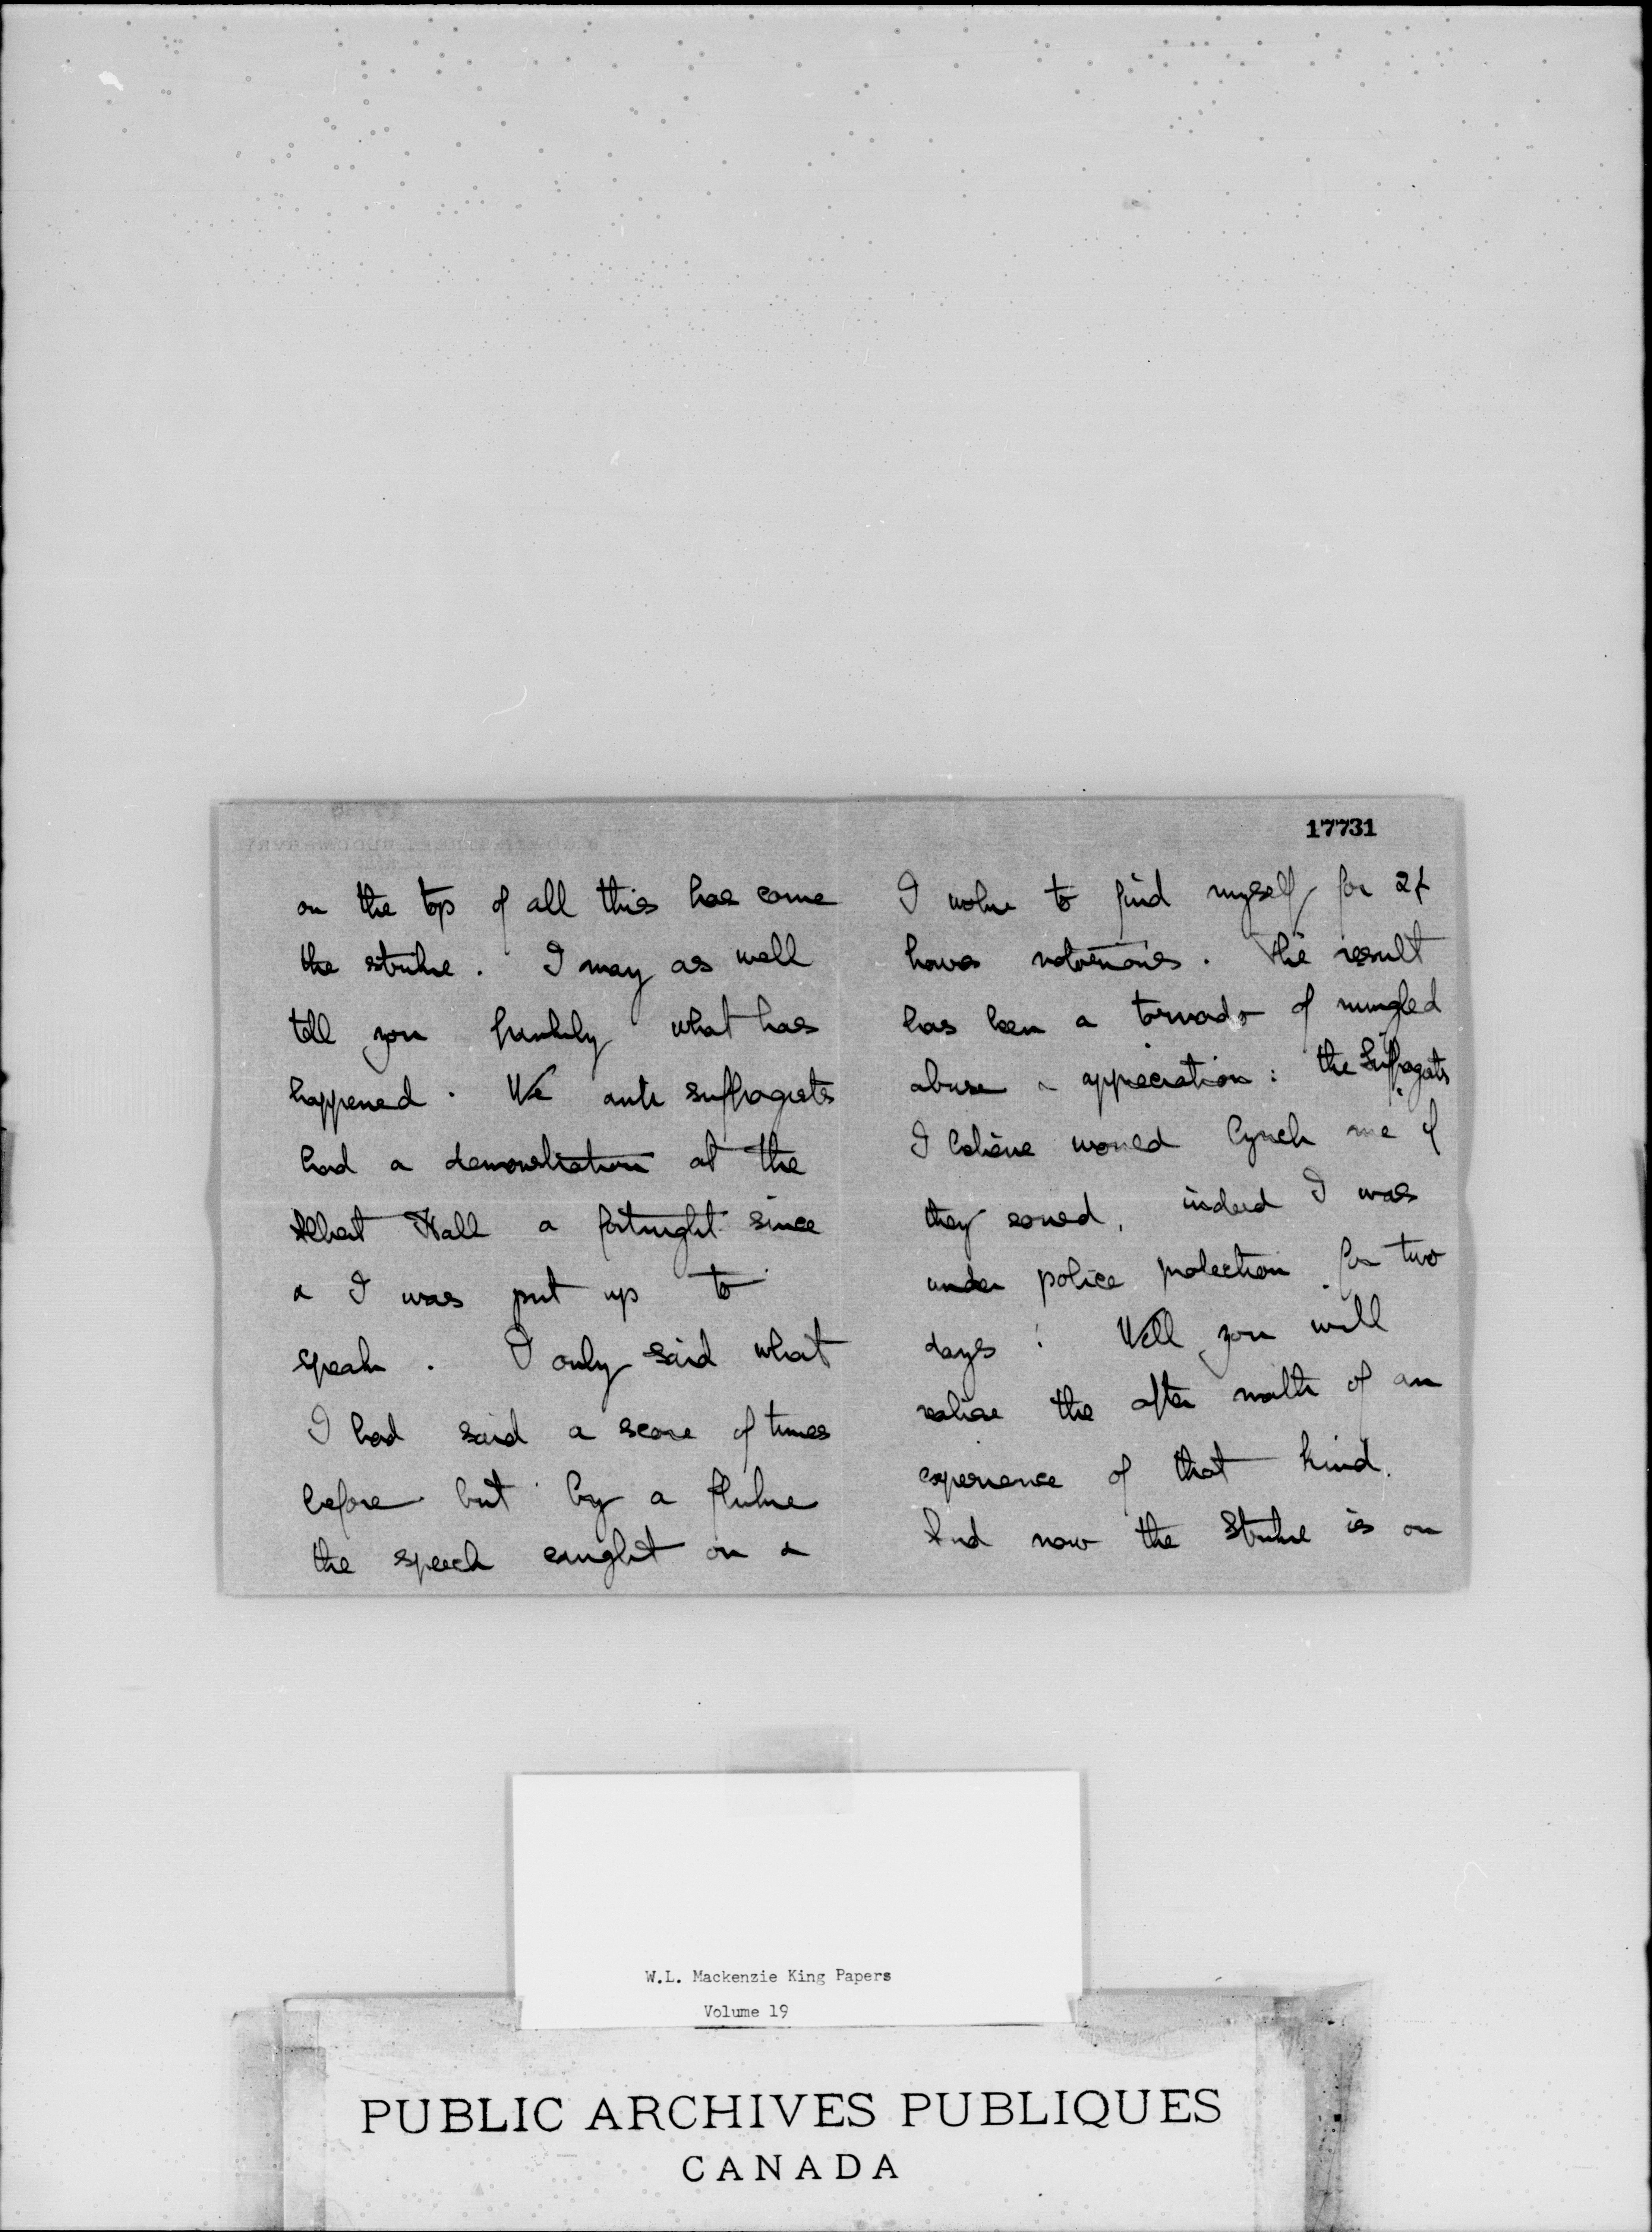 on the top of all this has come
the strike. I may as well
tell you frankly what has
happened. We anti suffragists
had a demonstration at the
Albert Hall a fortnight since
& I was put up to
speak. I only said what
I had said a score of times
before but by a fluke
the speech caught on &
17731
I woke to find myself for 24
hours notorious. The result
has been a tornado of mingled
abuse & appreciation: the Suffragists
I believe would lynch me if
they could, indeed I was
under police protection for two
days! Well you will
realise the after math of an
experience of that kind.
And now the strike is on
W.L. Mackenzie King Papers
Volume 19
PUBLIC ARCHIVES PUBLIQUES
CANADA